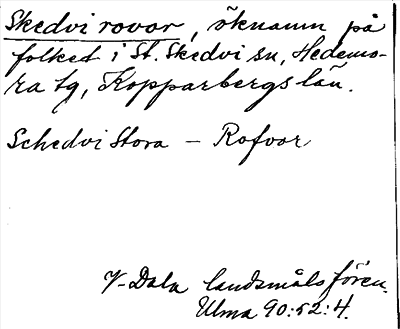 Skedvi rovor, öknamn på
folket i St. Skedvi sn, Hedemo-
ra tg, Kopparbergs län.
Schedvi Stora - Rofvor
V-Dala landsmålsfören.
Ulma 90:52:4.